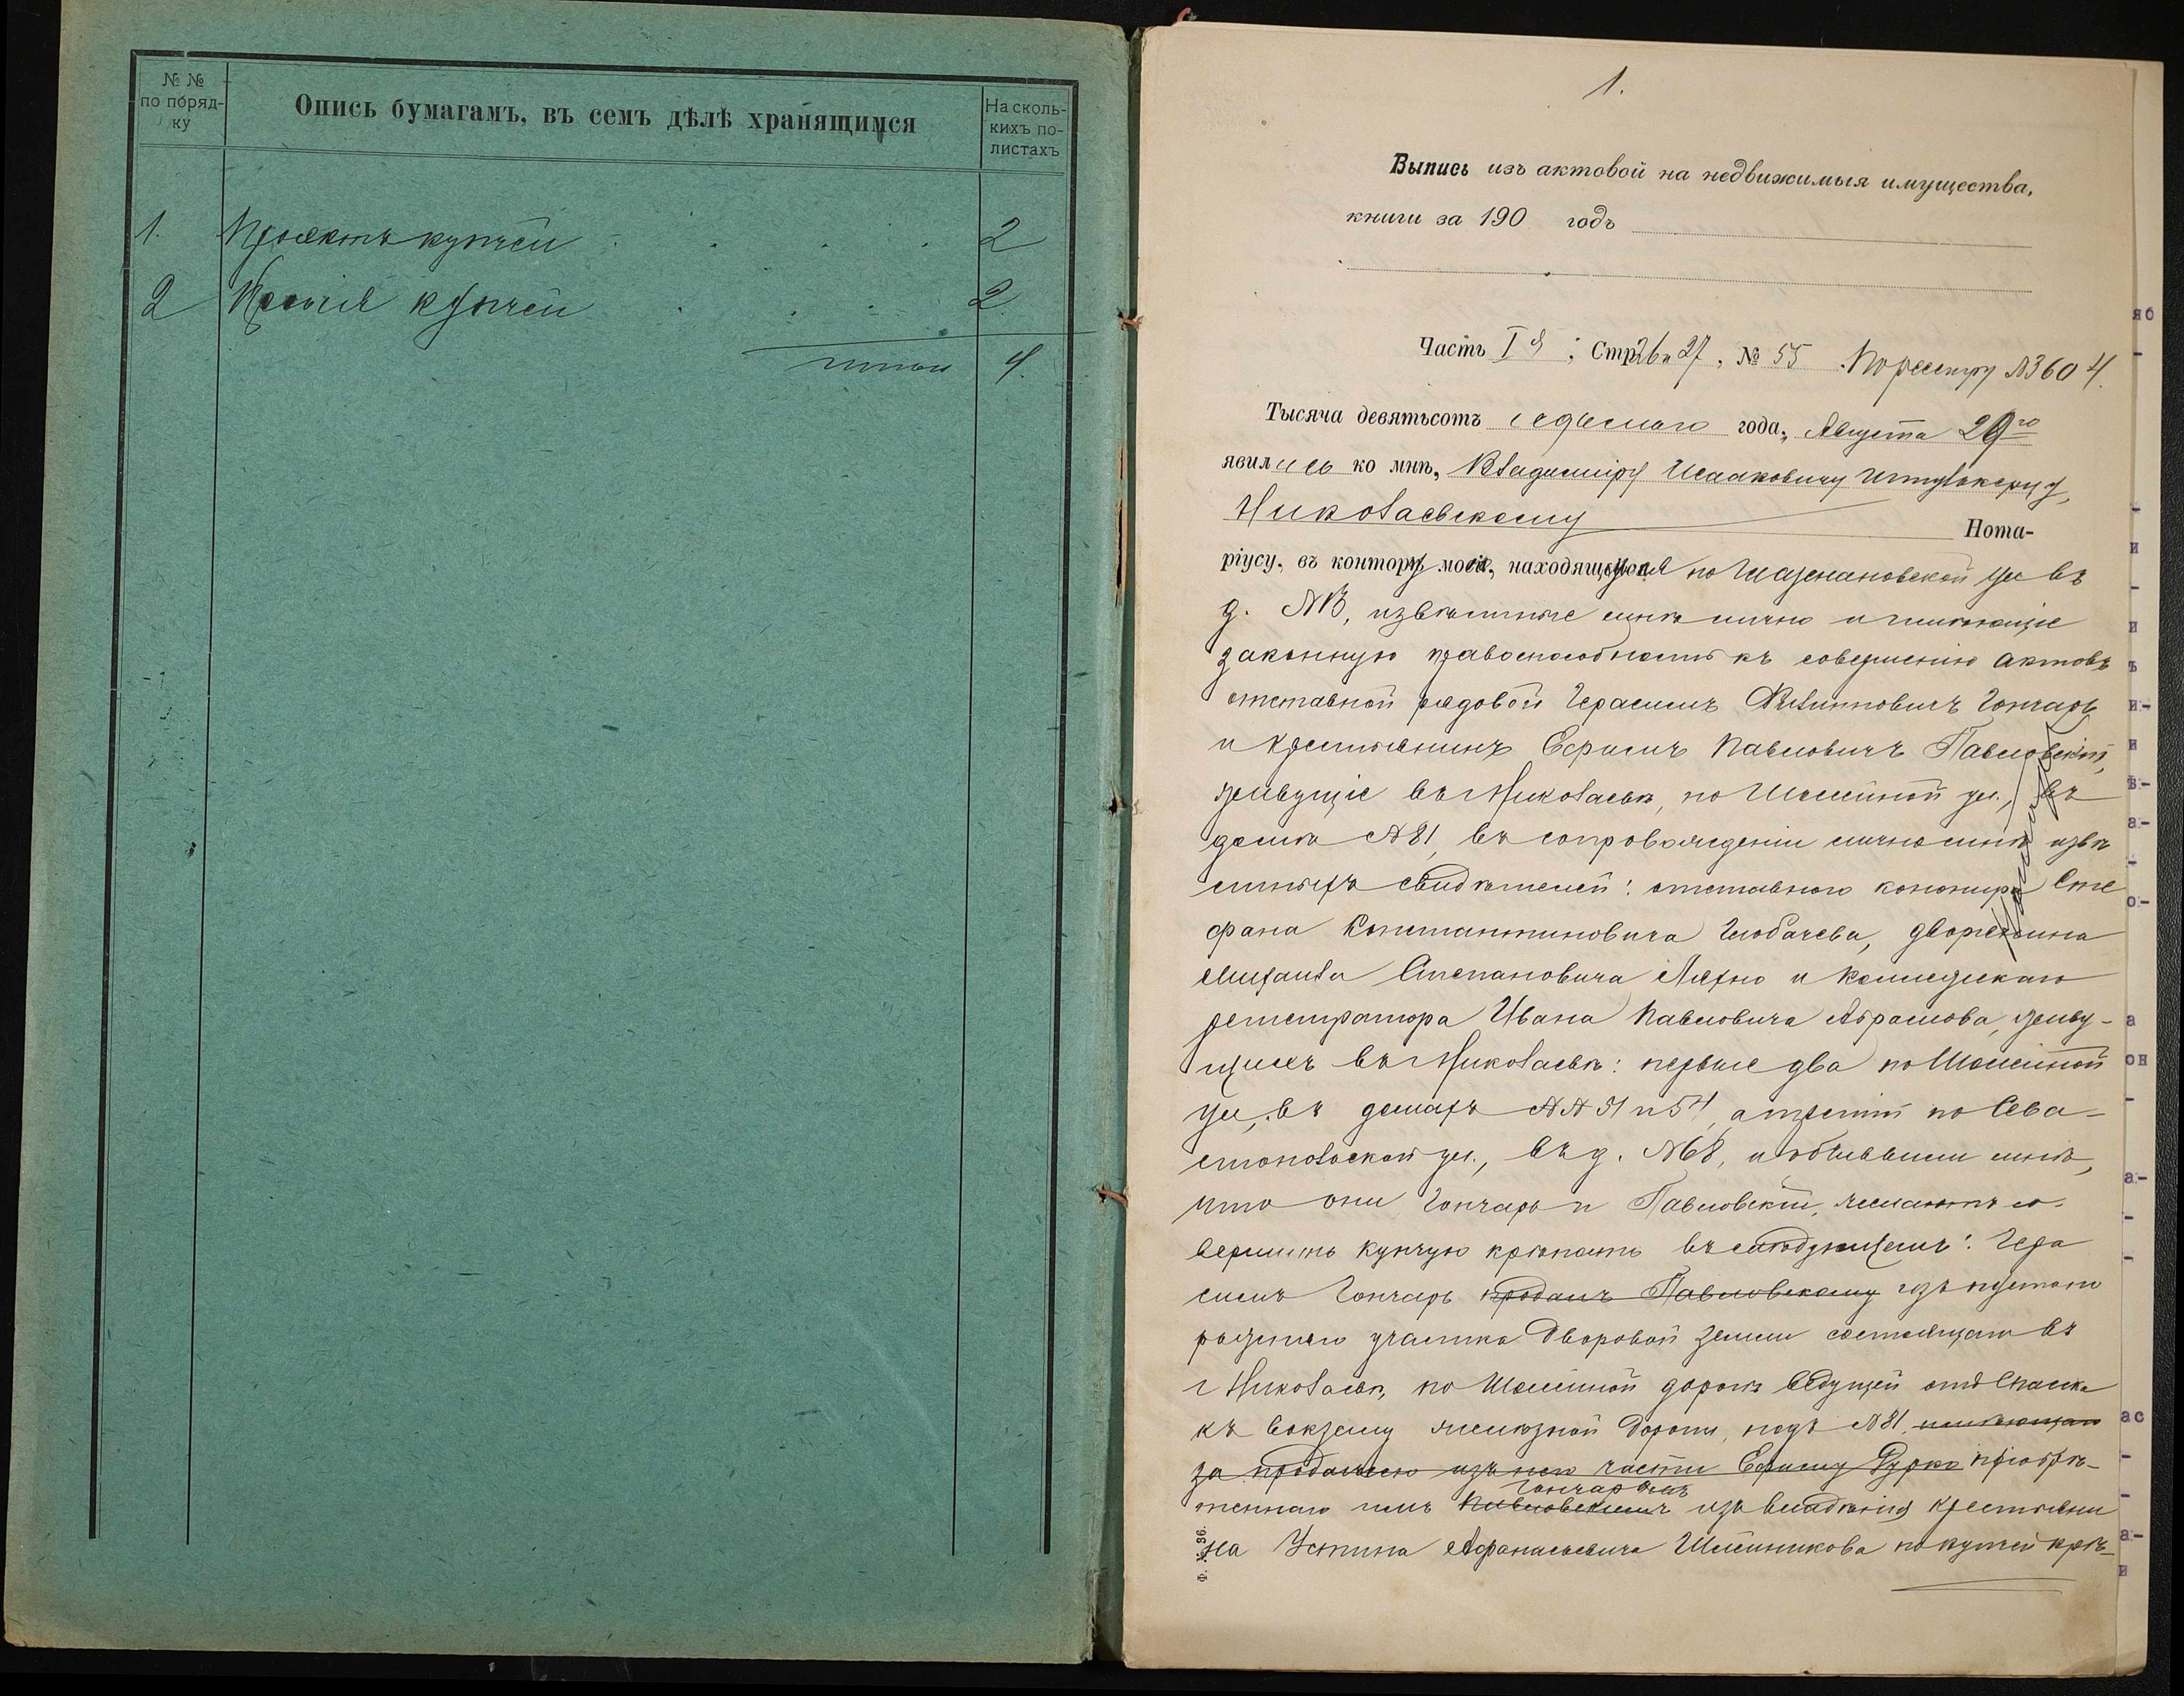 № №
по поряд-
ку
Опись бумагамъ, въ семъ дѣлѣ хранящимся
На сколь-
кихъ по-
листахъ
1. Проектъ купчей 2
2 Копія купчей 2
итого 4.
1.
Выпись изъ актовой на недвижимыя имущества,
книги за 190 годъ
Часть I я; Стр. 26 и 27, № 55. По реестру № 3604.
Тысяча девятьсотъ седьмого года, Августа 29го
явились ко мнѣ, Владиміру Исааковичу
Николаевскому Нота-
ріусу, въ контору мою, находящуюся по ул въ
д. № 13, извѣстные мнѣ лично и имѣющіе
законную правоспособность къ совершенію актовъ
отставной рядовой Герасимъ Филипповичъ Гончаръ
и крестьянинъ Ефимъ Павловичъ Павловскій,
живущіе въ г Николаевѣ, по Шоссейной ул., въ
домѣ № 81, въ сопровожденіи лично мнѣ извѣ
стныхъ свидѣтелей: отставного Сте
фана Константиновича дворянина
Михаила Степановича и Коллежскаго
регистратора Ивана Павловича Абрамова, живу-
щихъ въ г Николаевѣ: первые два по Шоссейной
ул., въ домахъ №№ 51 и 54, а третій по Сева-
стопольской ул., въ д. № 68, и объявили мнѣ,
что они Гончаръ и Павловскій, желаютъ со-
вершить купчую крѣпость въ слѣдующемъ: Гера
симъ Гончаръ продалъ Павловскому изъ пусто
участка дворовой земли состоящаго въ
г Николаевѣ, по Шоссейной дорогѣ ведущей отъ Спаска
къ вокзалу желѣзной дороги, подъ № 81, имѣющаго
за продажею изъ него части Ефиму пріобрѣ-
Гончаромъ
теннаго имъ Павловскимъ изъ владѣнія крестьяни
на Устина Афанасьевича по купчей крѣ-